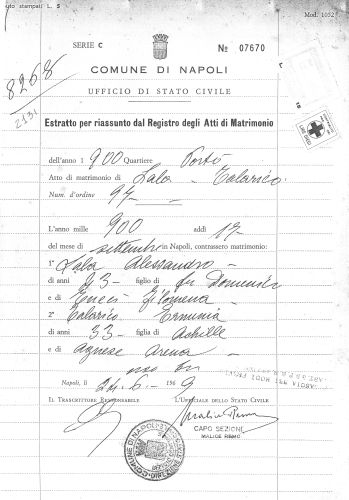 sto stampati L. 5
Mod. 1032
SERIE C
No 07670
8268
2131
COMUNE DI NAPOLI
UFFICIO DI STATO CIVILE
Estratto per riassunto dal Registro degli Atti di Matrimonio
dell'anno 1900 Quartiere Porto
Atto di matrimonio di Lala - Talarico
Num. d'ordine 97
L'anno mille 900 addì 17
del mese di settembre in Napoli, contrassero matrimonio:
1° Lala Alessandro
di anni 43 figlio di fu Domenico
e di Filomena
2° Talarico Erminia
di anni 33 figlia di Achille
e di Agnese Arena
Napoli, lì 24-6-1969
IL TRASCRITTORE RESPONSABILE
L'Ufficiale dello Stato Civile
CAPO SEZIONE
MALICE REMO
COMUNE DI NAPOLI